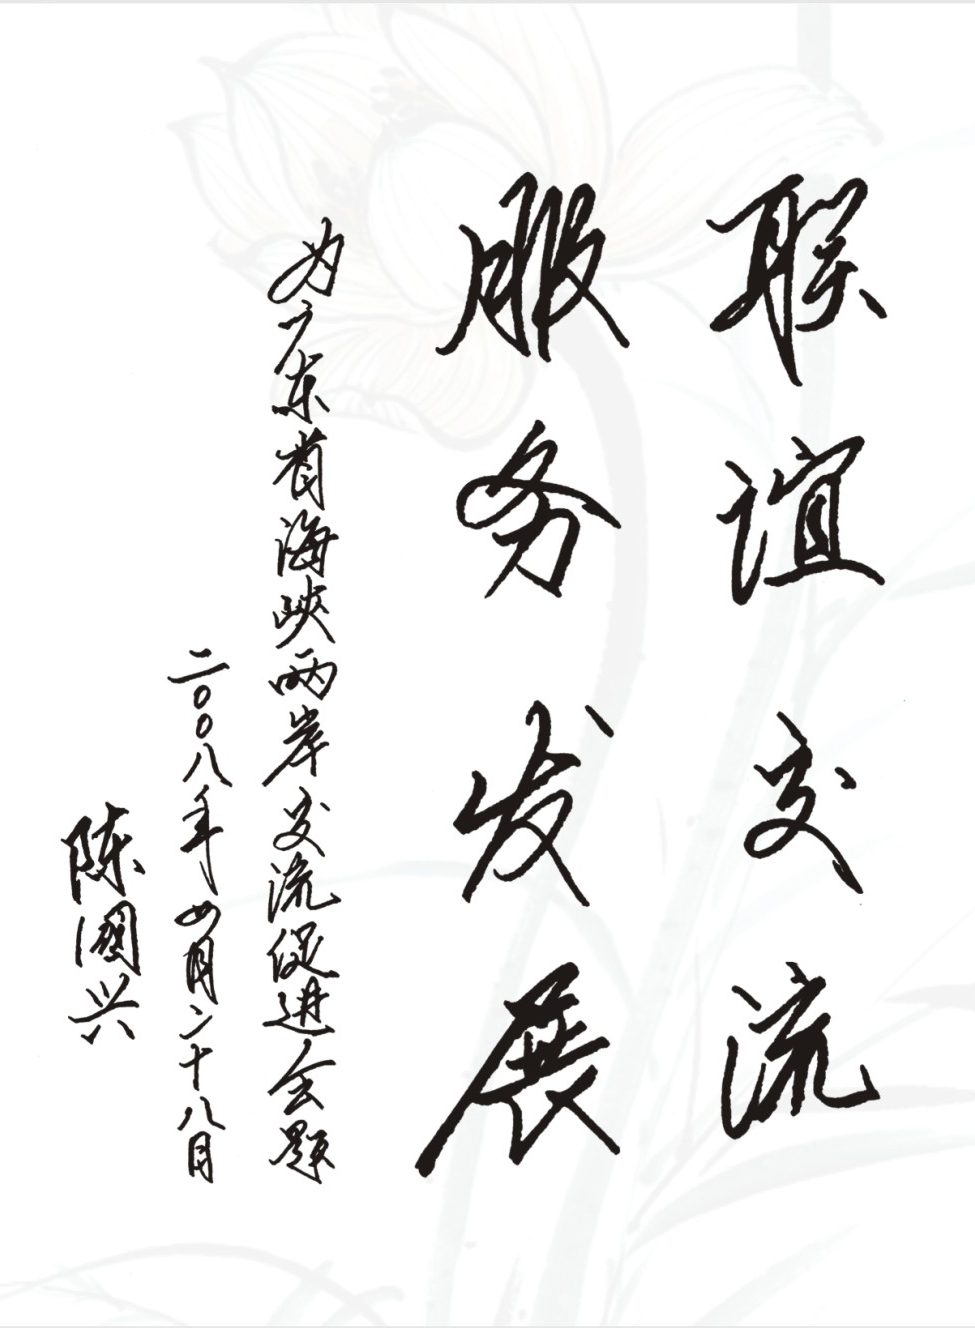 联谊交流
服务发展
为广东省海峡两岸交流促进会题
二〇〇八年四月二十八日
陈国兴